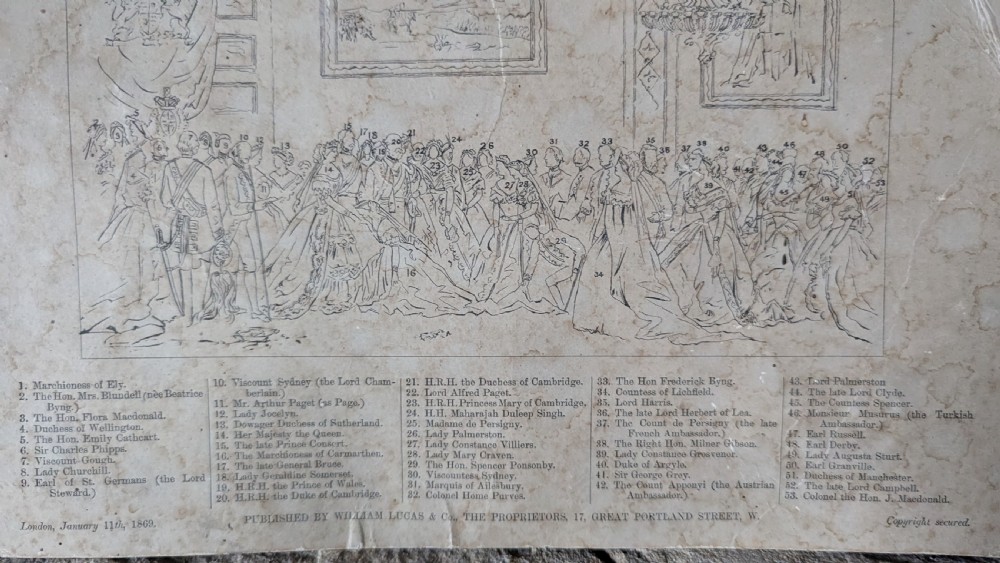 1. Marchioness of Ely.
2. The Hon. Mrs. Blundell (née Beatrice
Byng.)
3. The Hon. Flora Macdonald.
4. Duchess of Wellington.
5. The Hon. Emily Cathcart.
6. Sir Charles Phipps.
7. Viscount Gough.
8. Lady Churchill.
9. Earl of St. Germans (the Lord
Steward.)
10. Viscount Sydney (the Lord Cham-
berlain.)
11. Mr. Arthur Paget (as Page.)
12. Lady Jocelyn.
13. Dowager Duchess of Sutherland.
14. Her Majesty the Queen.
15. The late Prince Consort.
16. The Marchioness of Carmarthen.
17. The late General Bruce.
18. Lady Geraldine Somerset.
19. H.R.H. the Prince of Wales.
20. H.R.H. the Duke of Cambridge.
21. H.R.H. the Duchess of Cambridge.
22. Lord Alfred Paget.
23. H.R.H. Princess Mary of Cambridge.
24. H.H. Maharajah Duleep Singh.
25. Madame de Persigny.
26. Lady Palmerston.
27. Lady Constance Villiers.
28. Lady Mary Craven.
29. The Hon. Spencer Ponsonby.
30. Viscountess Sydney.
31. Marquis of Ailesbury.
32. Colonel Home Purves.
33. The Hon Frederick Byng.
34. Countess of Lichfield.
35. Lord Harris.
36. The late Lord Herbert of Lea.
37. The Count de Persigny (the late
French Ambassador.)
38. The Right Hon. Milner Gibson.
39. Lady Constance Grosvenor.
40. Duke of Argyle.
41. Sir George Grey.
42. The Count Apponyi (the Austrian
Ambassador.)
43. Lord Palmerston
44. The late Lord Clyde.
45. The Countess Spencer.
46. Monsieur Musurus (the Turkish
Ambassador.)
47. Earl Russell.
48. Earl Derby.
49. Lady Augusta Sturt.
50. Earl Granville.
51. Duchess of Manchester.
52. The late Lord Campbell.
53. Colonel the Hon. J. Macdonald.
London, January 11th, 1869.
PUBLISHED BY WILLIAM LUCAS & Co., THE PROPRIETORS, 17, GREAT PORTLAND STREET, W.
Copyright secured.